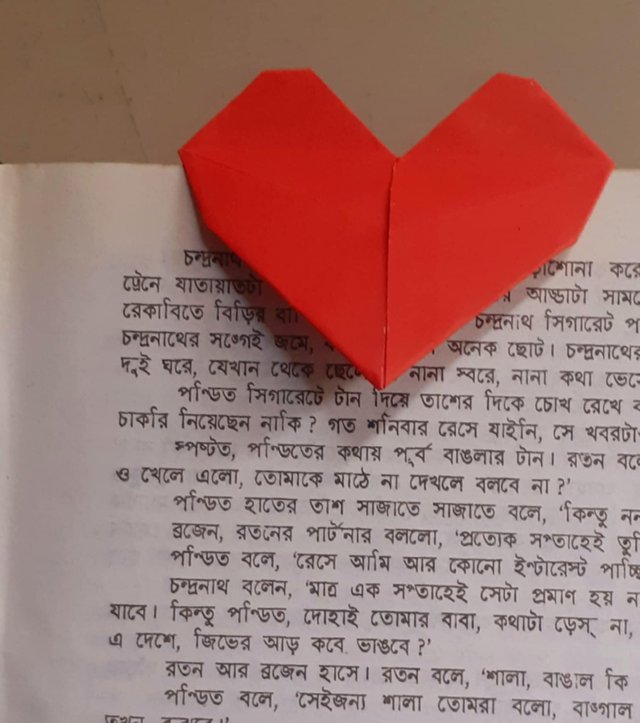 চন্দ্রনাথ াশোনা করে
ট্রেনে যাতায়াতটা র আড্ডাটা সাম
রেকাবিতে বিড়ির বা চন্দ্রনাথ সিগারেট প
চন্দ্রনাথের সঙ্গেই জমে, অনেক ছোট। চন্দ্রনাথের
দুই ঘরে, যেখান থেকে ছেলে নানা স্বরে, নানা কথা ভেসে
পণ্ডিত সিগারেটে টান দিয়ে তাশের দিকে চোখ রেখে ব
চাকরি নিয়েছেন নাকি? গত শনিবার রেসে যাইনি, সে খবরটা
স্পষ্টত, পণ্ডিতের কথায় পূর্ব বাঙলার টান। রতন বলে
ও খেলে এলো, তোমাকে মাঠে না দেখলে বলবে না?’
পণ্ডিত হাতের তাশ সাজাতে সাজাতে বলে, ‘কিন্তু নন
ব্রজেন, রতনের পার্টনার বললো, ‘প্রত্যেক সপ্তাহেই তুমি
পণ্ডিত বলে, ‘রেসে আমি আর কোনো ইন্টারেস্ট পাচ্ছি
চন্দ্রনাথ বলেন, ‘মাত্র এক সপ্তাহেই সেটা প্রমাণ হয় ন
যাবে। কিন্তু পণ্ডিত, দোহাই তোমার বাবা, কথাটা ড্রেস্ না,
এ দেশে, জিভের আড় কবে ভাঙবে?’
রতন আর ব্রজেন হাসে। রতন বলে, ‘শালা, বাঙাল কি
পণ্ডিত বলে, ‘সেইজন্য শালা তোমরা বলো, বাঙ্গাল